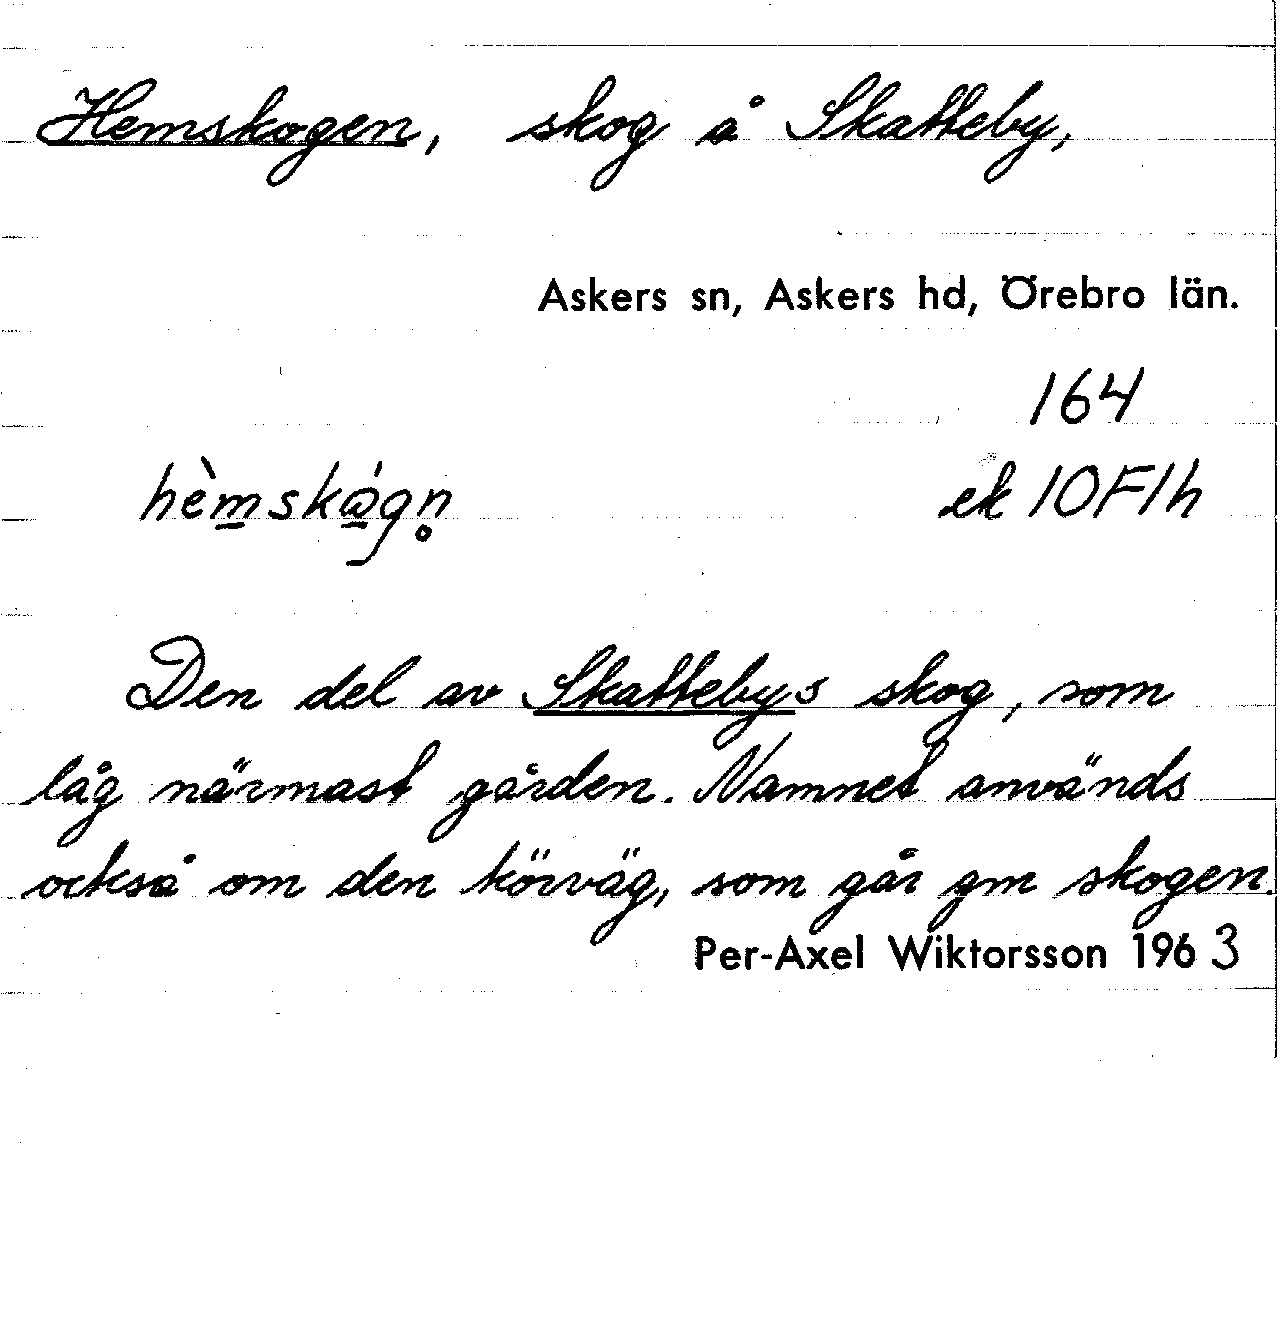 Hemskogen, skog å Skatteby,
Askers sn, Askers hd, Örebro län.
164
hèmskǻgn̥ ek 10F1h
Den del av Skattebys skog, som
låg närmast gården. Namnet används
också om den körväg, som går gm skogen.
Per-Axel Wiktorsson 1963